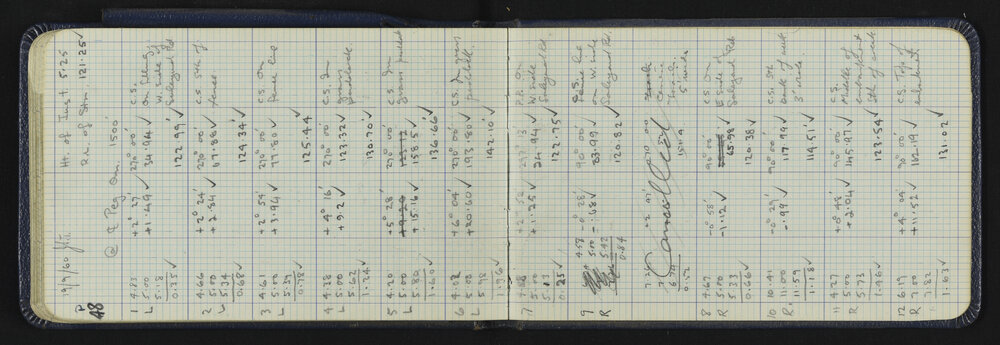 P
48
19/9/60 @ ℄ Peg on 1500' Ht. of Inst 5.25
R.L. of Stn. 121.25 ✓
1 4.83 +2° 27' 270° 00' C.S.
L 5.00 +1.49 ✓ 34.94 ✓ on
5.18 W. side of
0.35 ✓ 122.99 ✓ Saleyard Rd
4.66 +2° 24' 270° 00' C.S. 5th of
2 5.00 +2.84 ✓ 67.88 ✓ fence
L 5.34
0.68 ✓ 124.34 ✓
3 4.61 +2° 54' 270° 00' C.S. on
L 5.00 +3.94 ✓ 77.80 ✓ fence line
5.39
0.78 ✓ 125.44
4 4.38 +4° 16' 270° 00' C.S. In
L 5.00 +9.2 ✓ 123.32 ✓ grass
5.62 paddock
1.24 ✓ 130.70 ✓
5 4.20 +5° 28' 270° 00' C.S. In
L 5.00 +9.20 grass paddock
5.80 +15.16 ✓ 158.5 ✓
1.60 ✓ 136.66 ✓
6 4.02 +6° 04' 270° 00' C.S. In grass
L 5.00 +20.60 ✓ 193.80 ✓ paddock
5.98
1.96 ✓ 142.10 ✓
7 4.88 +2° 52' 297° 13' P.P. on
L 5.00 +1.25 ✓ 24.94 ✓ W side
5.13 Saleyard Rd.
0.25 ✓ 122.75 ✓
9 4.58 -0° 28' 90° 00' C.S.
R 5.00 -.68 ✓ 83.99 ✓ on W. side
5.42 Saleyard Rd.
0.84 120.82 ✓
Cancelled
8 4.67 -0° 58' 90° 00' C.S. on
R 5.00 -1.12 ✓ 65.98 ✓ E side of
5.33 Saleyard Rd
0.66 ✓ 120.38 ✓
10 10.41 -0° 29' 90° 00' C.S. 5th
R 11.00 -.99 ✓ 117.99 ✓ side of
11.59 3' wide
1.18 ✓ 119.51 ✓
11 4.27 +0° 48' 90° 00' C.S.
R 5.00 +2.04 ✓ 145.97 ✓ Middle of
5.73 embankment
1.46 ✓ 123.54 ✓ 5th of creek
12 6.19 +4° 04' 90° 00' C.S. Top of
R 7.00 +11.52 ✓ 162.19 ✓ embankment
7.82
1.63 ✓ 131.02 ✓